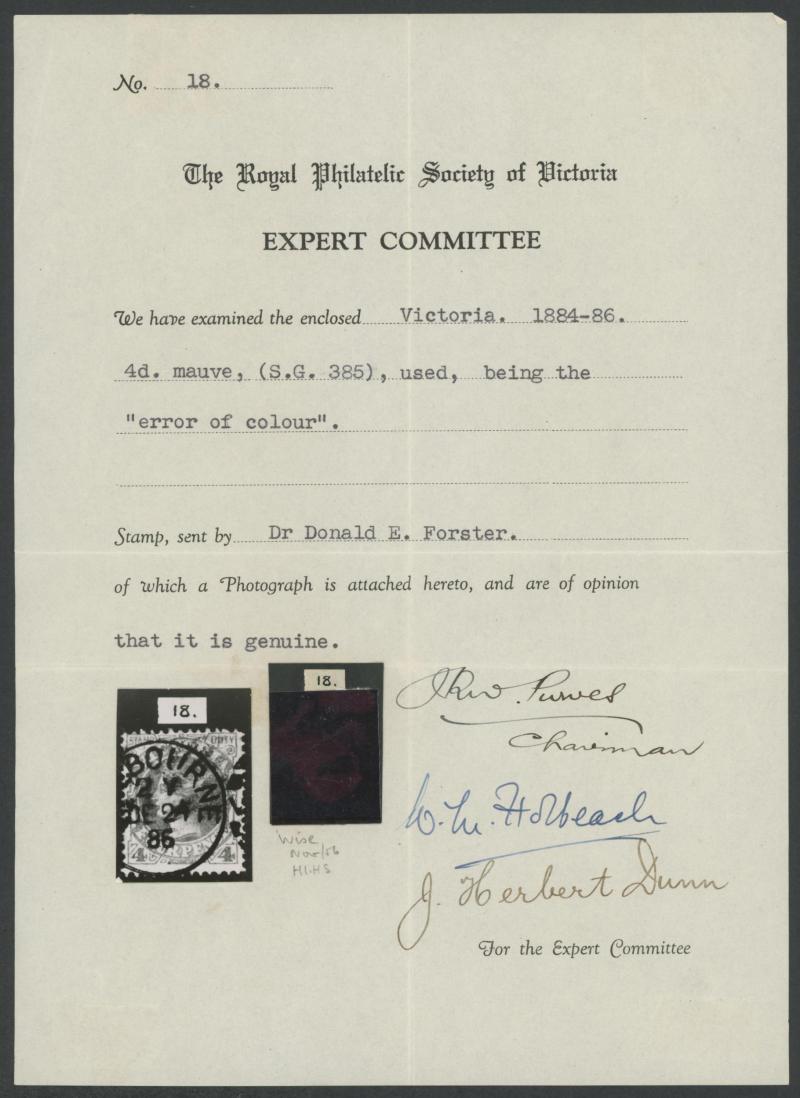 No. 18.
The Royal Philatelic Society of Victoria
EXPERT COMMITTEE
We have examined the enclosed Victoria. 1884-86.
4d. mauve, (S.G. 385), used, being the
"error of colour".
Stamp, sent by Dr Donald E. Forster.
of which a Photograph is attached hereto, and are of opinion
that it is genuine.
18.
18.
STAMP DUTY
BOURNE
2
DE 24
86
4 4
Wise
Nov/56
H1.HS
J.R.W. Purves
Chairman
W. M. Holbeach
J. Herbert Dunn
For the Expert Committee